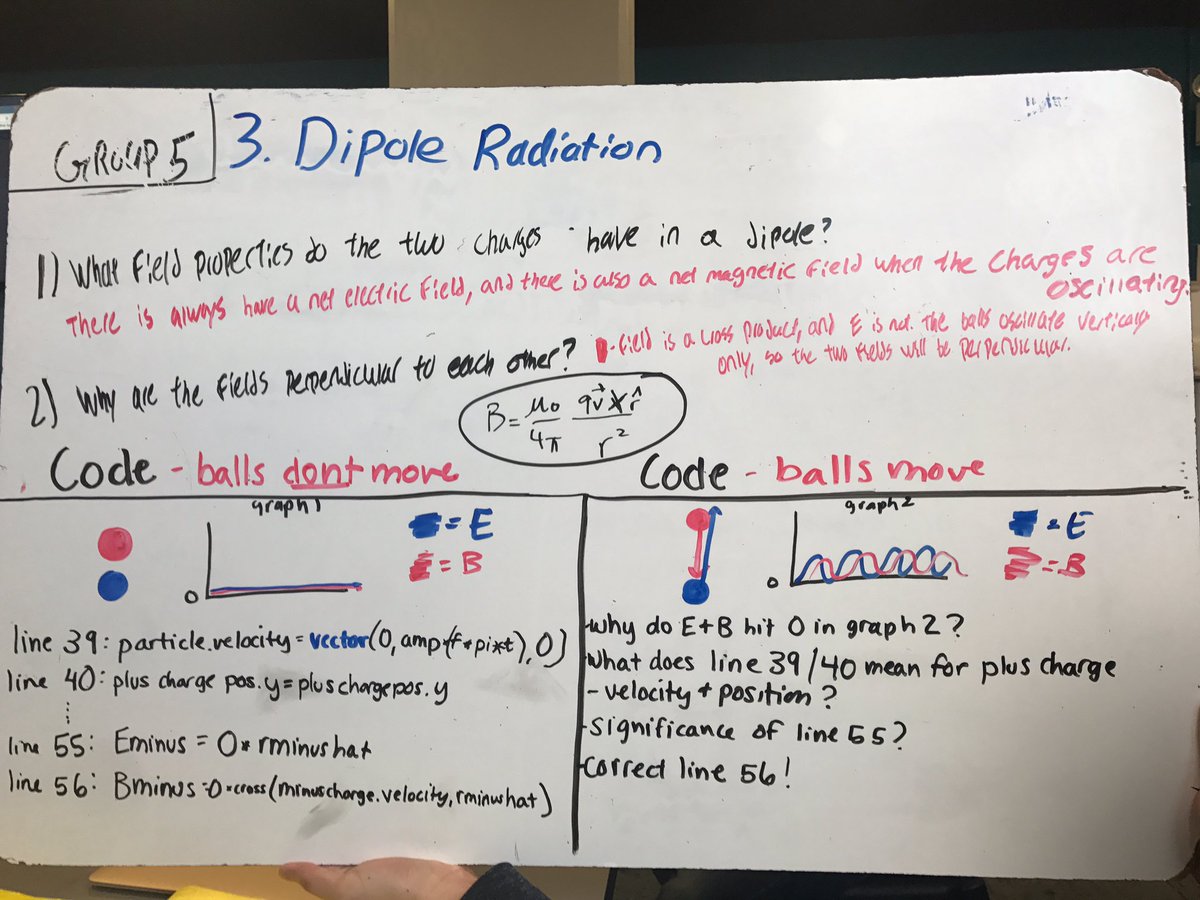 GROUP 5
3. Dipole Radiation
1) What field properties do the two charges have in a dipole?
There is always have a net electric field, and there is also a net magnetic field when the charges are
oscillating.
2) Why are the fields perpendicular to each other?
-field is a cross product, and E is not. The balls oscillate vertically
only, so the two fields will be perpendicular.
B = μ0/4π qv⃗ × r̂/r²
Code - balls dont move
graph 1
0
= E
= B
line 39: particle.velocity = vector(0, amp*(f*pi*t), 0)
line 40: plus charge pos.y = plus chargepos.y
line 55: Eminus = 0* rminushat
line 56: Bminus = 0*cross(minuscharge.velocity, rminushat)
Code - balls move
graph 2
0
= E
= B
-why do E+B hit 0 in graph 2?
-What does line 39/40 mean for plus charge
- velocity + position?
-Significance of line 55?
-Correct line 56!